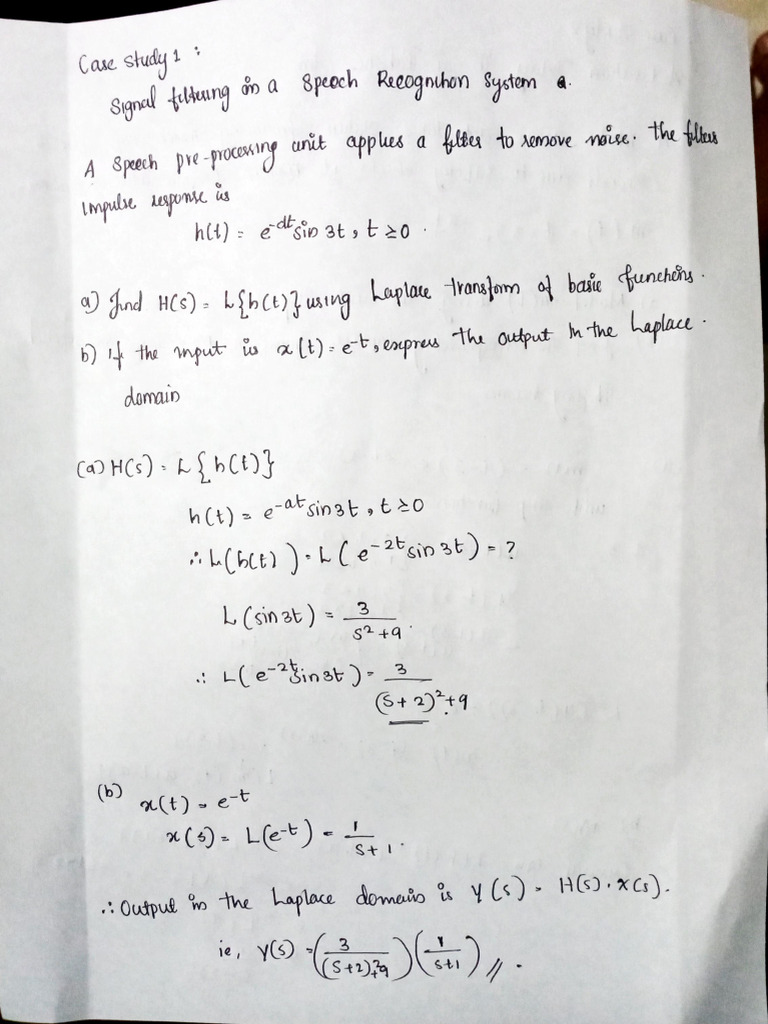 Case study 1 :
Signal filtering in a Speech Recognition System
A Speech pre-processing unit applies a filter to remove noise. The filters
impulse response is
h(t) = e^-dt sin 3t, t ≥ 0.
a) find H(s) = L{h(t)} using Laplace transform of basic functions.
b) If the input is x(t) = e^-t, express the output in the Laplace.
domain
(a) H(s) = L{h(t)}
h(t) = e^-at sin 3t, t ≥ 0
∴ L(h(t)) = L(e^-2t sin 3t) = ?
L(sin 3t) = 3/(s^2+9).
∴ L(e^-2t sin 3t) = 3/((s+2)^2+9)
(b) x(t) = e^-t
x(s) = L(e^-t) = 1/(s+1).
∴ Output in the Laplace domain is Y(s) = H(s) · X(s).
ie, Y(s) = (3/((s+2)^2+9)) (1/(s+1)) //.